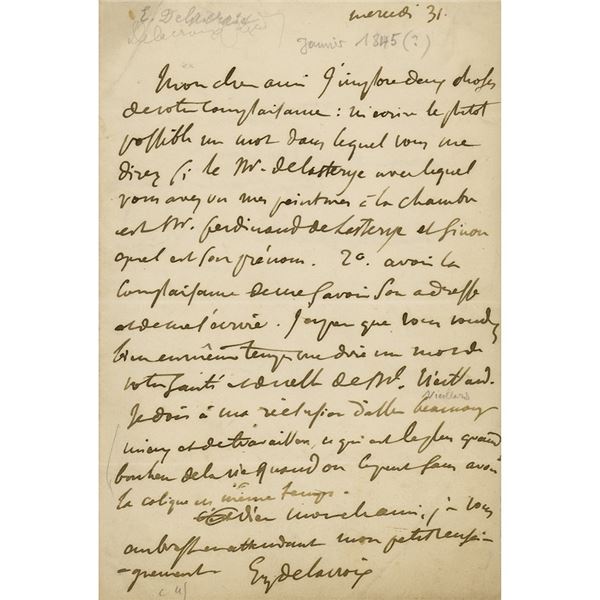 E. Delacroix
Delacroix
mercredi 31.
Janvier 1845 (?)
Mon cher ami J'implore deux choses
de votre complaisance : m'écrire le plutot
possible un mot dans lequel vous me
direz si le Mr. de lasteyrie avec lequel
vous avez vu mes peintures à la chambre
est Mr. ferdinand de Lasteyrie et sinon
quel est son prénom. 2o. avoir la
complaisance de me savoir son adresse
et de me l'écrire. J'espère que vous voudrez
bien en même temps me dire un mot de
votre santé et de celle de Mr. Vieillard.
Vieillard
Je dois à ma réclusion d'aller beaucoup
mieux et de travailler, ce qui est le plus grand
bonheur de la vie quand on le peut sans avoir
la colique en même temps.
adieu mon cher ami, je vous
embrasse en attendant mon petit rensei-
-gnement
Eug Delacroix